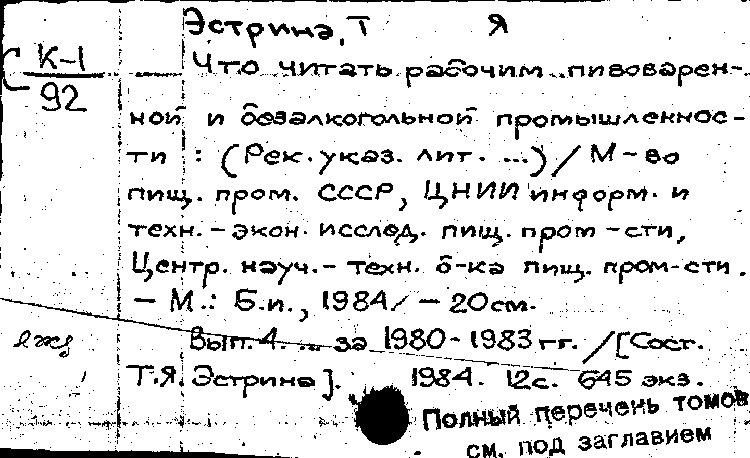 Эстрина, Т Я
К-1
92
Что читать рабочим пивоварен-
ной и безалкогольной промышленнос-
ти : (Рек. указ. лит. ...) / М-во
пищ. пром. СССР, ЦНИИ информ. и
техн.-экон. исслед. пищ. пром-сти,
Центр. науч.-техн. б-ка пищ. пром-сти.
— М.: Б.и., 1984/ — 20см.
Вып. 4. ... за 1980-1983 гг. / [Сост.
Т.Я. Эстрина]. 1984. 12с. 645 экз.
Полный перечень томов
см. под заглавием